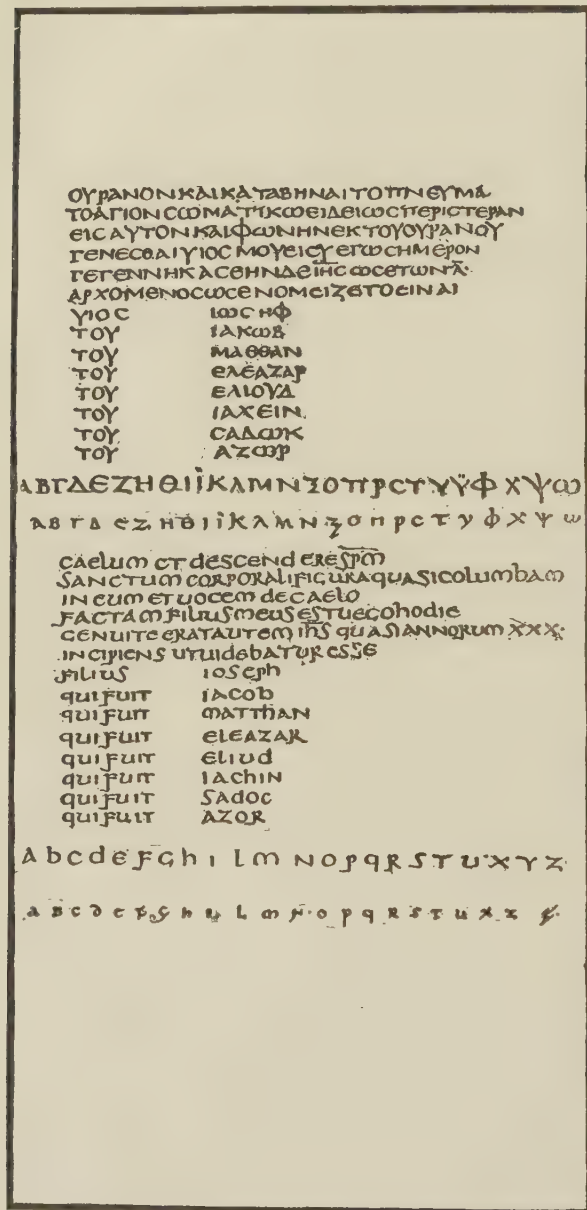 ΟΥΡΑΝΟΝΚΑΙΚΑΤΑΒΗΝΑΙΤΟΠΝΕΥΜΑ
ΤΟΑΓΙΟΝϹΩΜΑΤΙΚΩΕΙΔΕΙΩϹΠΕΡΙϹΤΕΡΑΝ
ΕΙϹΑΥΤΟΝΚΑΙΦΩΝΗΝΕΚΤΟΥΟΥΡΑΝΟΥ
ΓΕΝΕϹΘΑΙΥΙΟϹΜΟΥΕΙϹΥΕΓΩϹΗΜΕΡΟΝ
ΓΕΓΕΝΝΗΚΑϹΕΗΝΔΕΙΗ̅ϹΩϹΕΤΩΝΛ̅·
ΑΡΧΟΜΕΝΟϹΩϹΕΝΟΜΕΙΖΕΤΟΕΙΝΑΙ
ΥΙΟϹ ΙΩϹΗΦ
ΤΟΥ ΙΑΚΩΒ
ΤΟΥ ΜΑΘΘΑΝ
ΤΟΥ ΕΛΕΑΖΑΡ
ΤΟΥ ΕΛΙΟΥΔ
ΤΟΥ ΙΑΧΕΙΝ
ΤΟΥ ϹΑΔΩΚ
ΤΟΥ ΑΖΩΡ
ΑΒΓΔΕΖΗΘΙΪΚΛΜΝΞΟΠΡϹΤΥΫΦΧΨΩ
ΑΒΓΔΕΖΗΘΙΪΚΛΜΝΞΟΠΡϹΤΥΦΧΨΩ
CAELUM ET DESCENDERESP̅M̅
SANCTUM CORPORALIFIGURAQUASICOLUMBAM
IN EUM ETUOCEM DECAELO
FACTAMFILIUSMEUSESTUEGOHODIE
GENUITEERATAUTEM IH̅S QUASIANNORUM X̅X̅X̅:
INCIPIENS UTUIDEBATURESSE
FILIUS IOSEPH
QUIFUIT IACOB
QUIFUIT MATTHAN
QUIFUIT ELEAZAR
QUIFUIT ELIUD
QUIFUIT IACHIN
QUIFUIT SADOC
QUIFUIT AZOR
A b c d e F G h I L m N O P q R S T U X Y Z